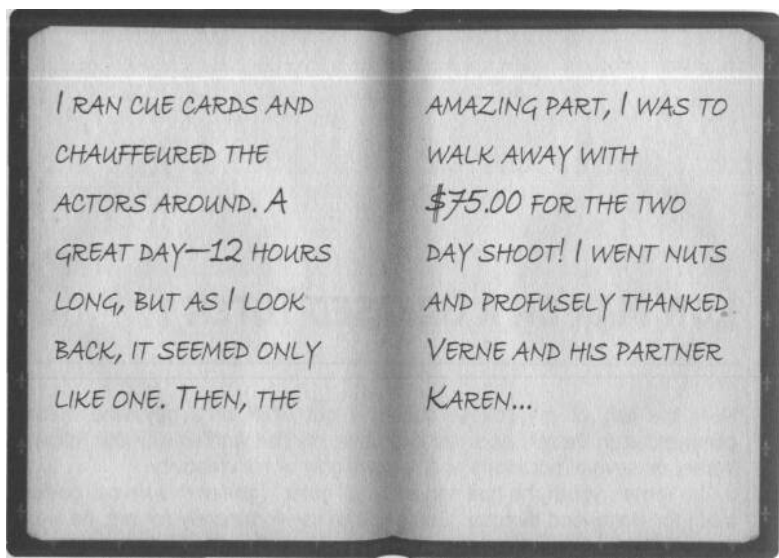 I RAN CUE CARDS AND
CHAUFFEURED THE
ACTORS AROUND. A
GREAT DAY—12 HOURS
LONG, BUT AS I LOOK
BACK, IT SEEMED ONLY
LIKE ONE. THEN, THE
AMAZING PART, I WAS TO
WALK AWAY WITH
$75.00 FOR THE TWO
DAY SHOOT! I WENT NUTS
AND PROFUSELY THANKED
VERNE AND HIS PARTNER
KAREN...